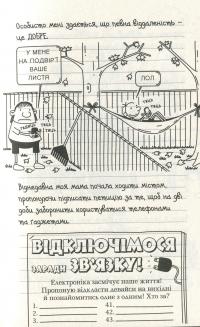 Особисто мені здається, що певна віддаленість –
це ДОБРЕ.
У МЕНЕ
НА ПОДВІР'Ї
ВАШЕ
ЛИСТЯ
ЛОЛ
Віднедавна моя мама почала ходити містом,
пропонуючи підписати петицію за те, щоб на дві
доби заборонити користуватися телефонами
та ґаджетами.
ВІДКЛЮЧІМОСЯ
ЗАРАДИ ЗВ'ЯЗКУ!
Електроніка засмічує наше життя!
Пропоную відкласти девайси на вихідні
й познайомитись одне з одним! Хто за?
1. 41.
2. 42.
3. 43.